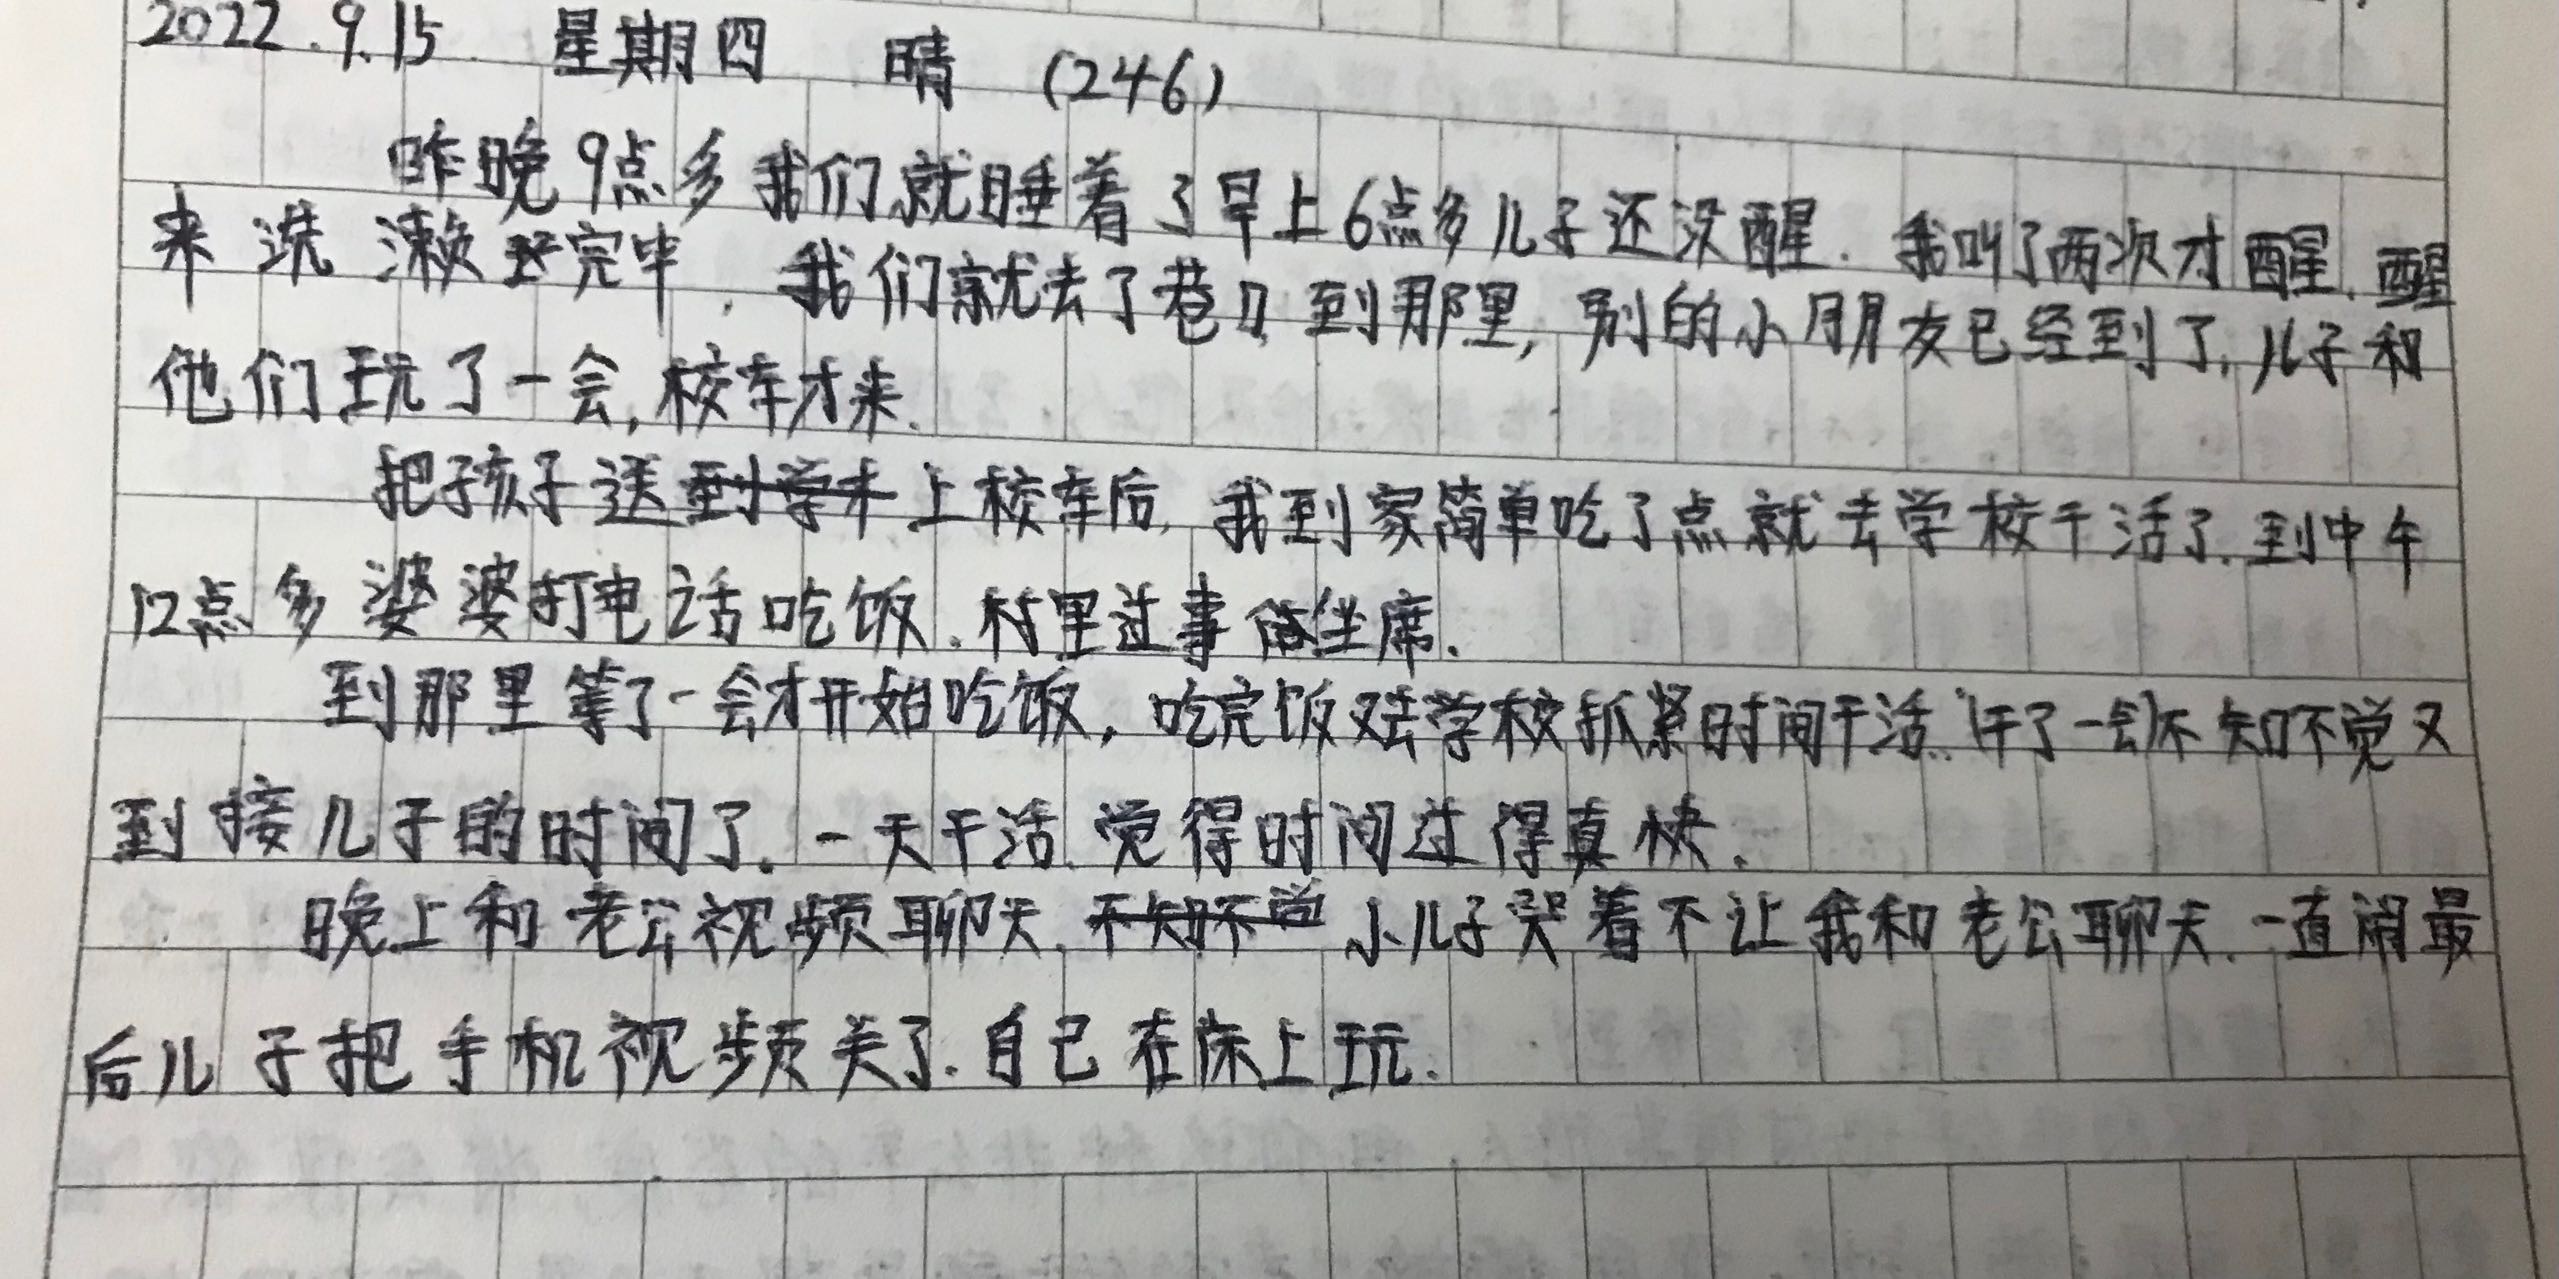 2022.9.15 星期四 晴 (246)
昨晚9点多我们就睡着了早上6点多儿子还没醒.我叫了两次才醒.醒
来洗漱完毕,我们就去了巷口到那里,别的小朋友已经到了,儿子和
他们玩了一会,校车才来.
把孩子送上校车后,我到家简单吃了点就去学校干活了.到中午
12点多婆婆打电话吃饭.村里过事坐席.
到那里等了一会才开始吃饭,吃完饭又去学校抓紧时间干活.(干了一会)不知不觉又
到接儿子的时间了.一天干活觉得时间过得真快.
晚上和老公视频聊天.不知不觉小儿子哭着不让我和老公聊天.一直闹最
后儿子把手机视频关了.自己在床上玩.